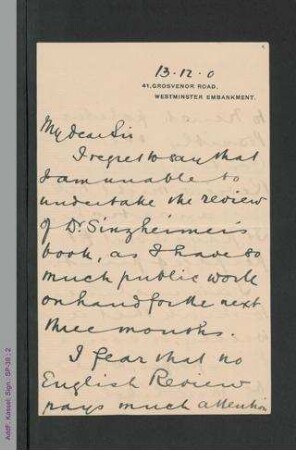 13.12.0
41, GROSVENOR ROAD,
WESTMINSTER EMBANKMENT.
My dear Sir
I regret to say that
I am unable to
undertake the review
of Dr Sinzheimer's
book, as I have so
much public work
on hand for the next
three months.
I fear that no
English Review
pays much attention
AddF, Kassel; Sign.: SP-39 ; 2